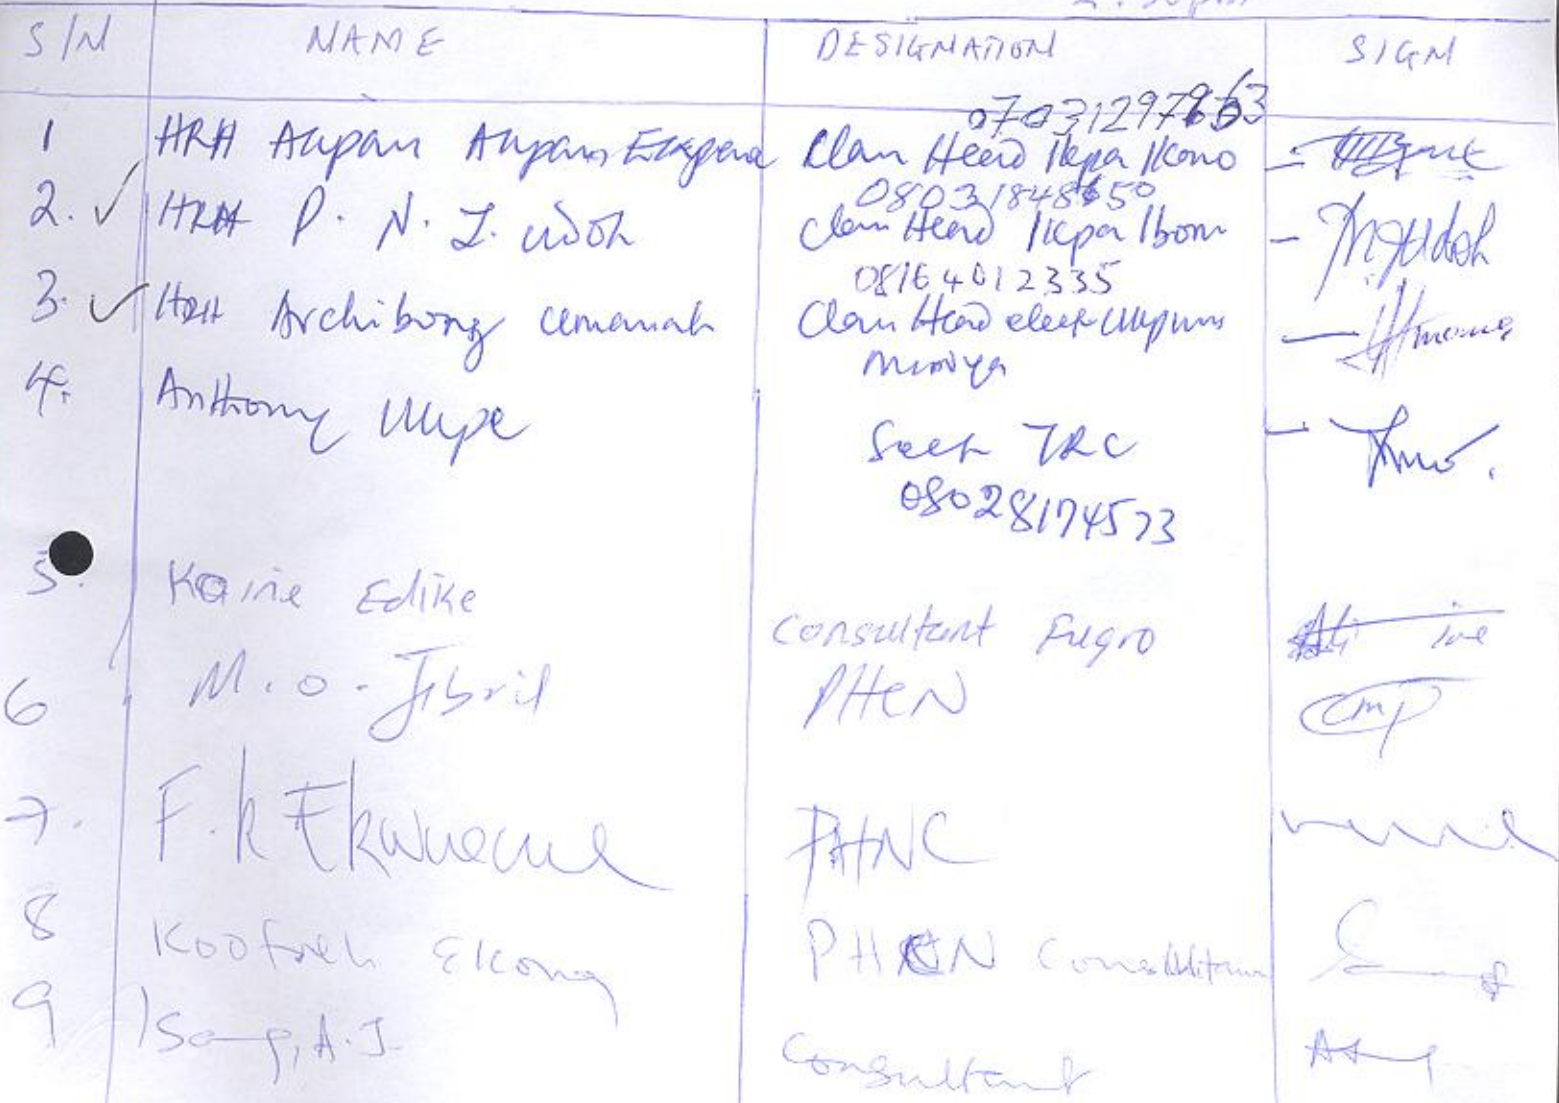 S/N NAME DESIGNATION SIGN
1 HRH Akpan Akpan Ekpena Clan Head Ikpa Ikono
2. HRH P. N. J. Udoh 08031848650
Clan Head Ikpa Ibom
08164012335
3. HRH Archibong Umanah Clan Head elect
4. Anthony Ukpe
Sect TRC
08028174573
5. Kaine Edike
Consultant Fugro
6 M.O. Jibril PHCN
7. F.K Ekwueme PHNC
8 Koofreh Ekong PHCN Consultant
9 Isong, A.J.
Consultant